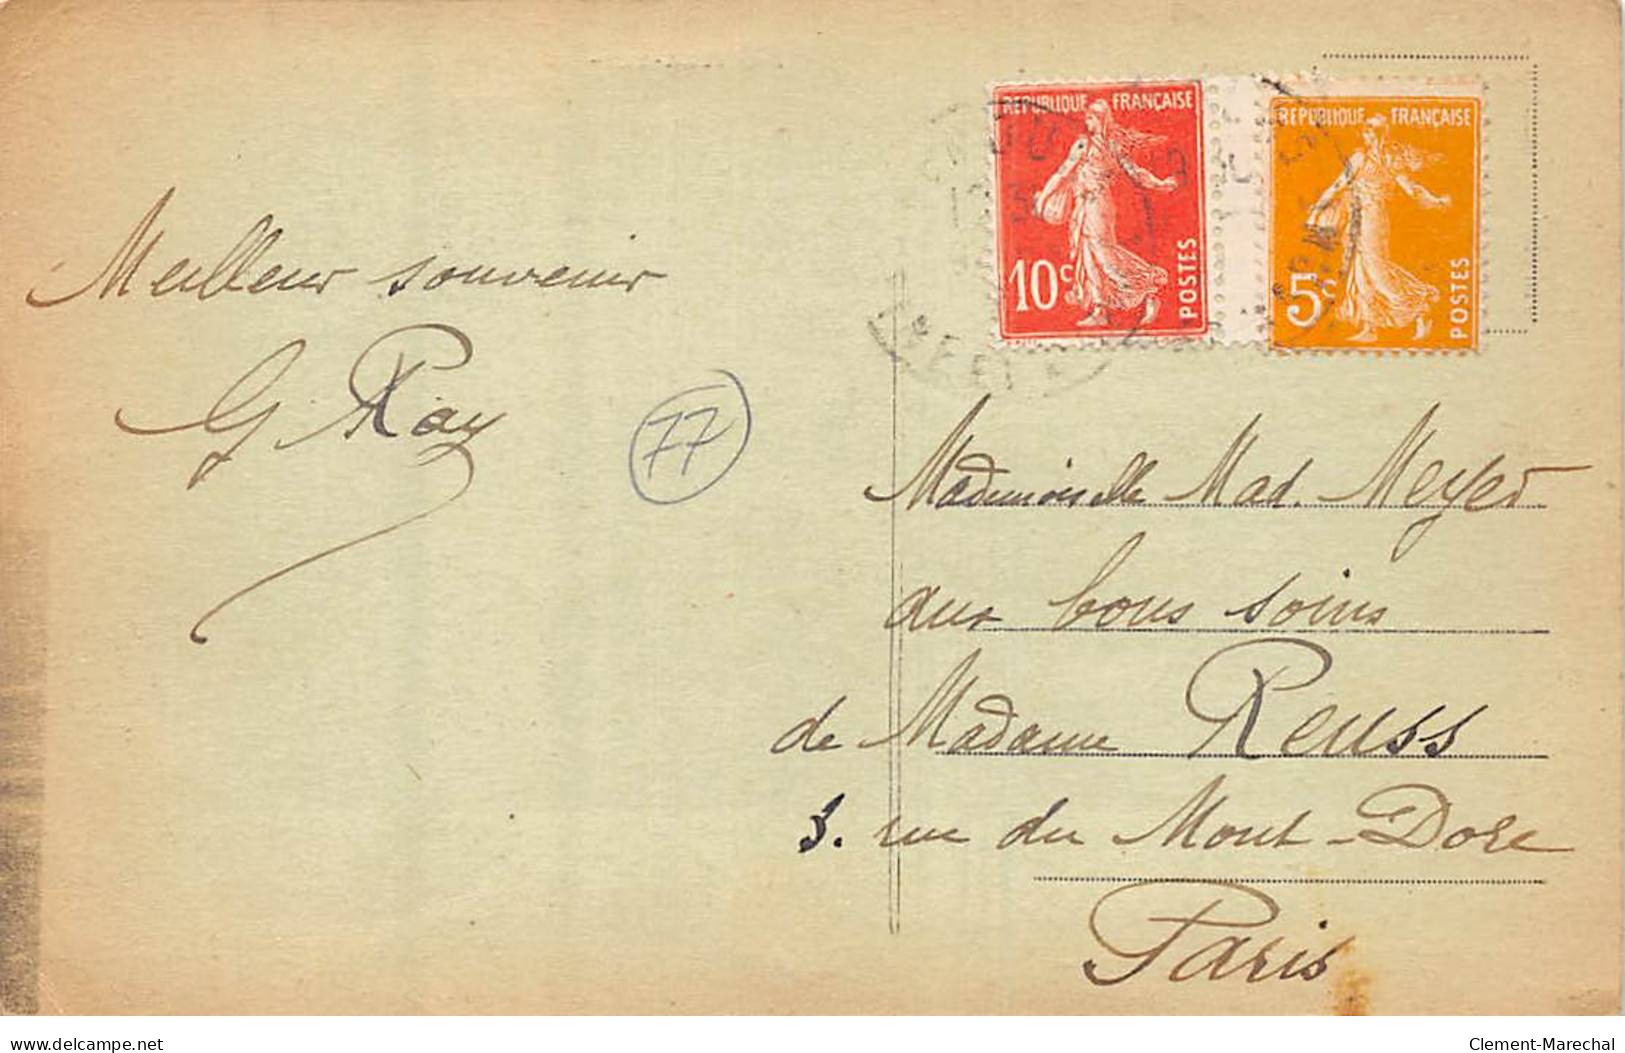 REPUBLIQUE FRANÇAISE
10c POSTES
REPUBLIQUE FRANÇAISE
5c POSTES
Meilleur souvenir
G Ray
77
Mademoiselle Mad. Meyer
aux bons soins
de Madame Reuss
3. rue du Mont-Dore
Paris
www.delcampe.net
Clement-Marechal